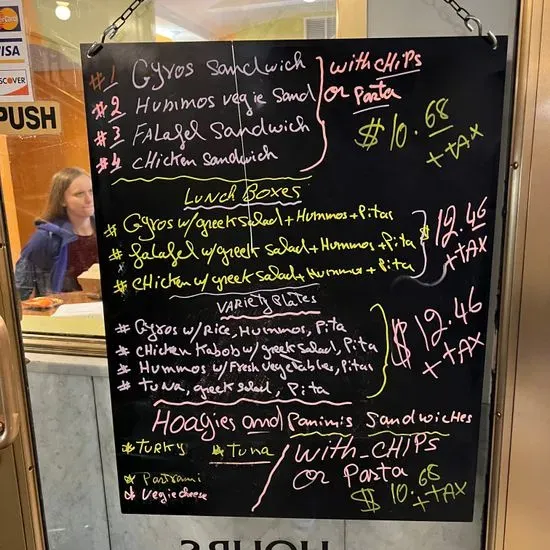 MasterCard
VISA
DISCOVER
PUSH
#1 Gyros Sandwich
#2 Hummos vegie Sand
#3 FALAfel Sandwich
#4 CHicken Sandwich
with CHiPs
or Pasta
$10.68
+ tAX
Lunch Boxes
* Gyros w/greek Salad + Hummos + Pitas
* falafel w/greek Salad + Hummos + Pitas
* CHicken w/greek Salad + Hummos + Pita
$12.46
+ tAX
VARiety Plates
* Gyros w/Rice, Hummos, Pita
* CHicken Kabob w/greek Salad, Pita
* Hummos w/Fresh vegetables, Pitas
* Tuna, greek Salad, Pita
$12.46
+ tAX
Hoagies and Paninis Sandwiches
* TURKy * Tuna
* Pastrami
* Vegie cheese
WitH-CHIPS
OR Pasta
$10.68
+ tAX
HOURS